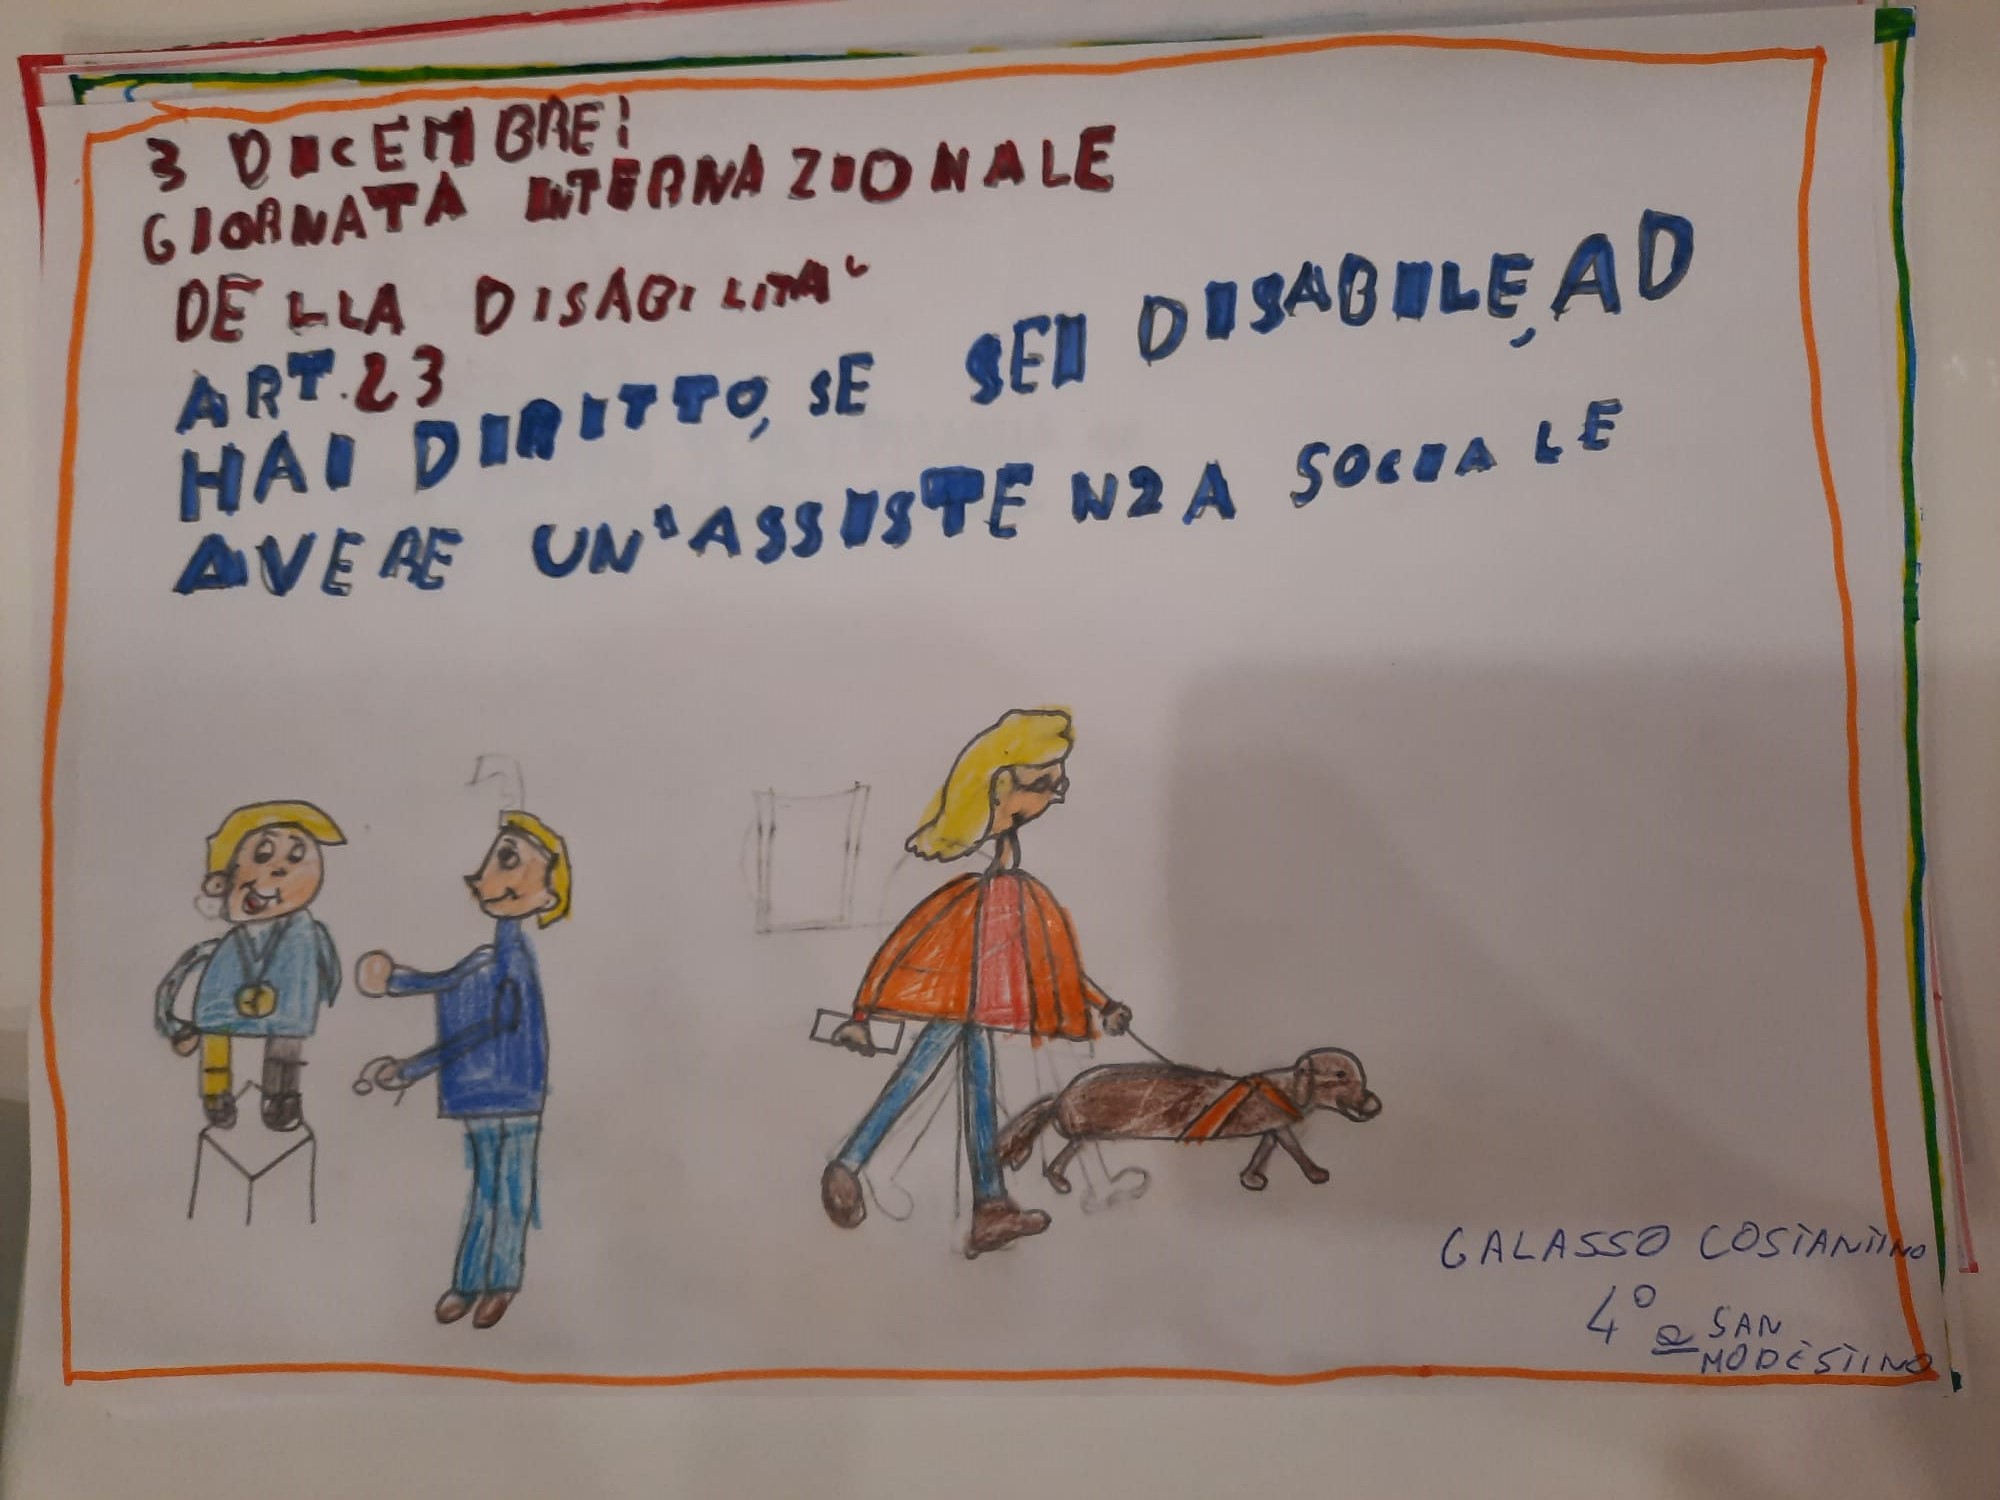 3 DICEMBRE:
GIORNATA INTERNAZIONALE
DELLA DISABILITA'
ART.23
HAI DIRITTO, SE SEI DISABILE, AD
AVERE UN'ASSISTENZA SOCIALE
GALASSO COSTANTINO
4° a SAN
MODESTINO